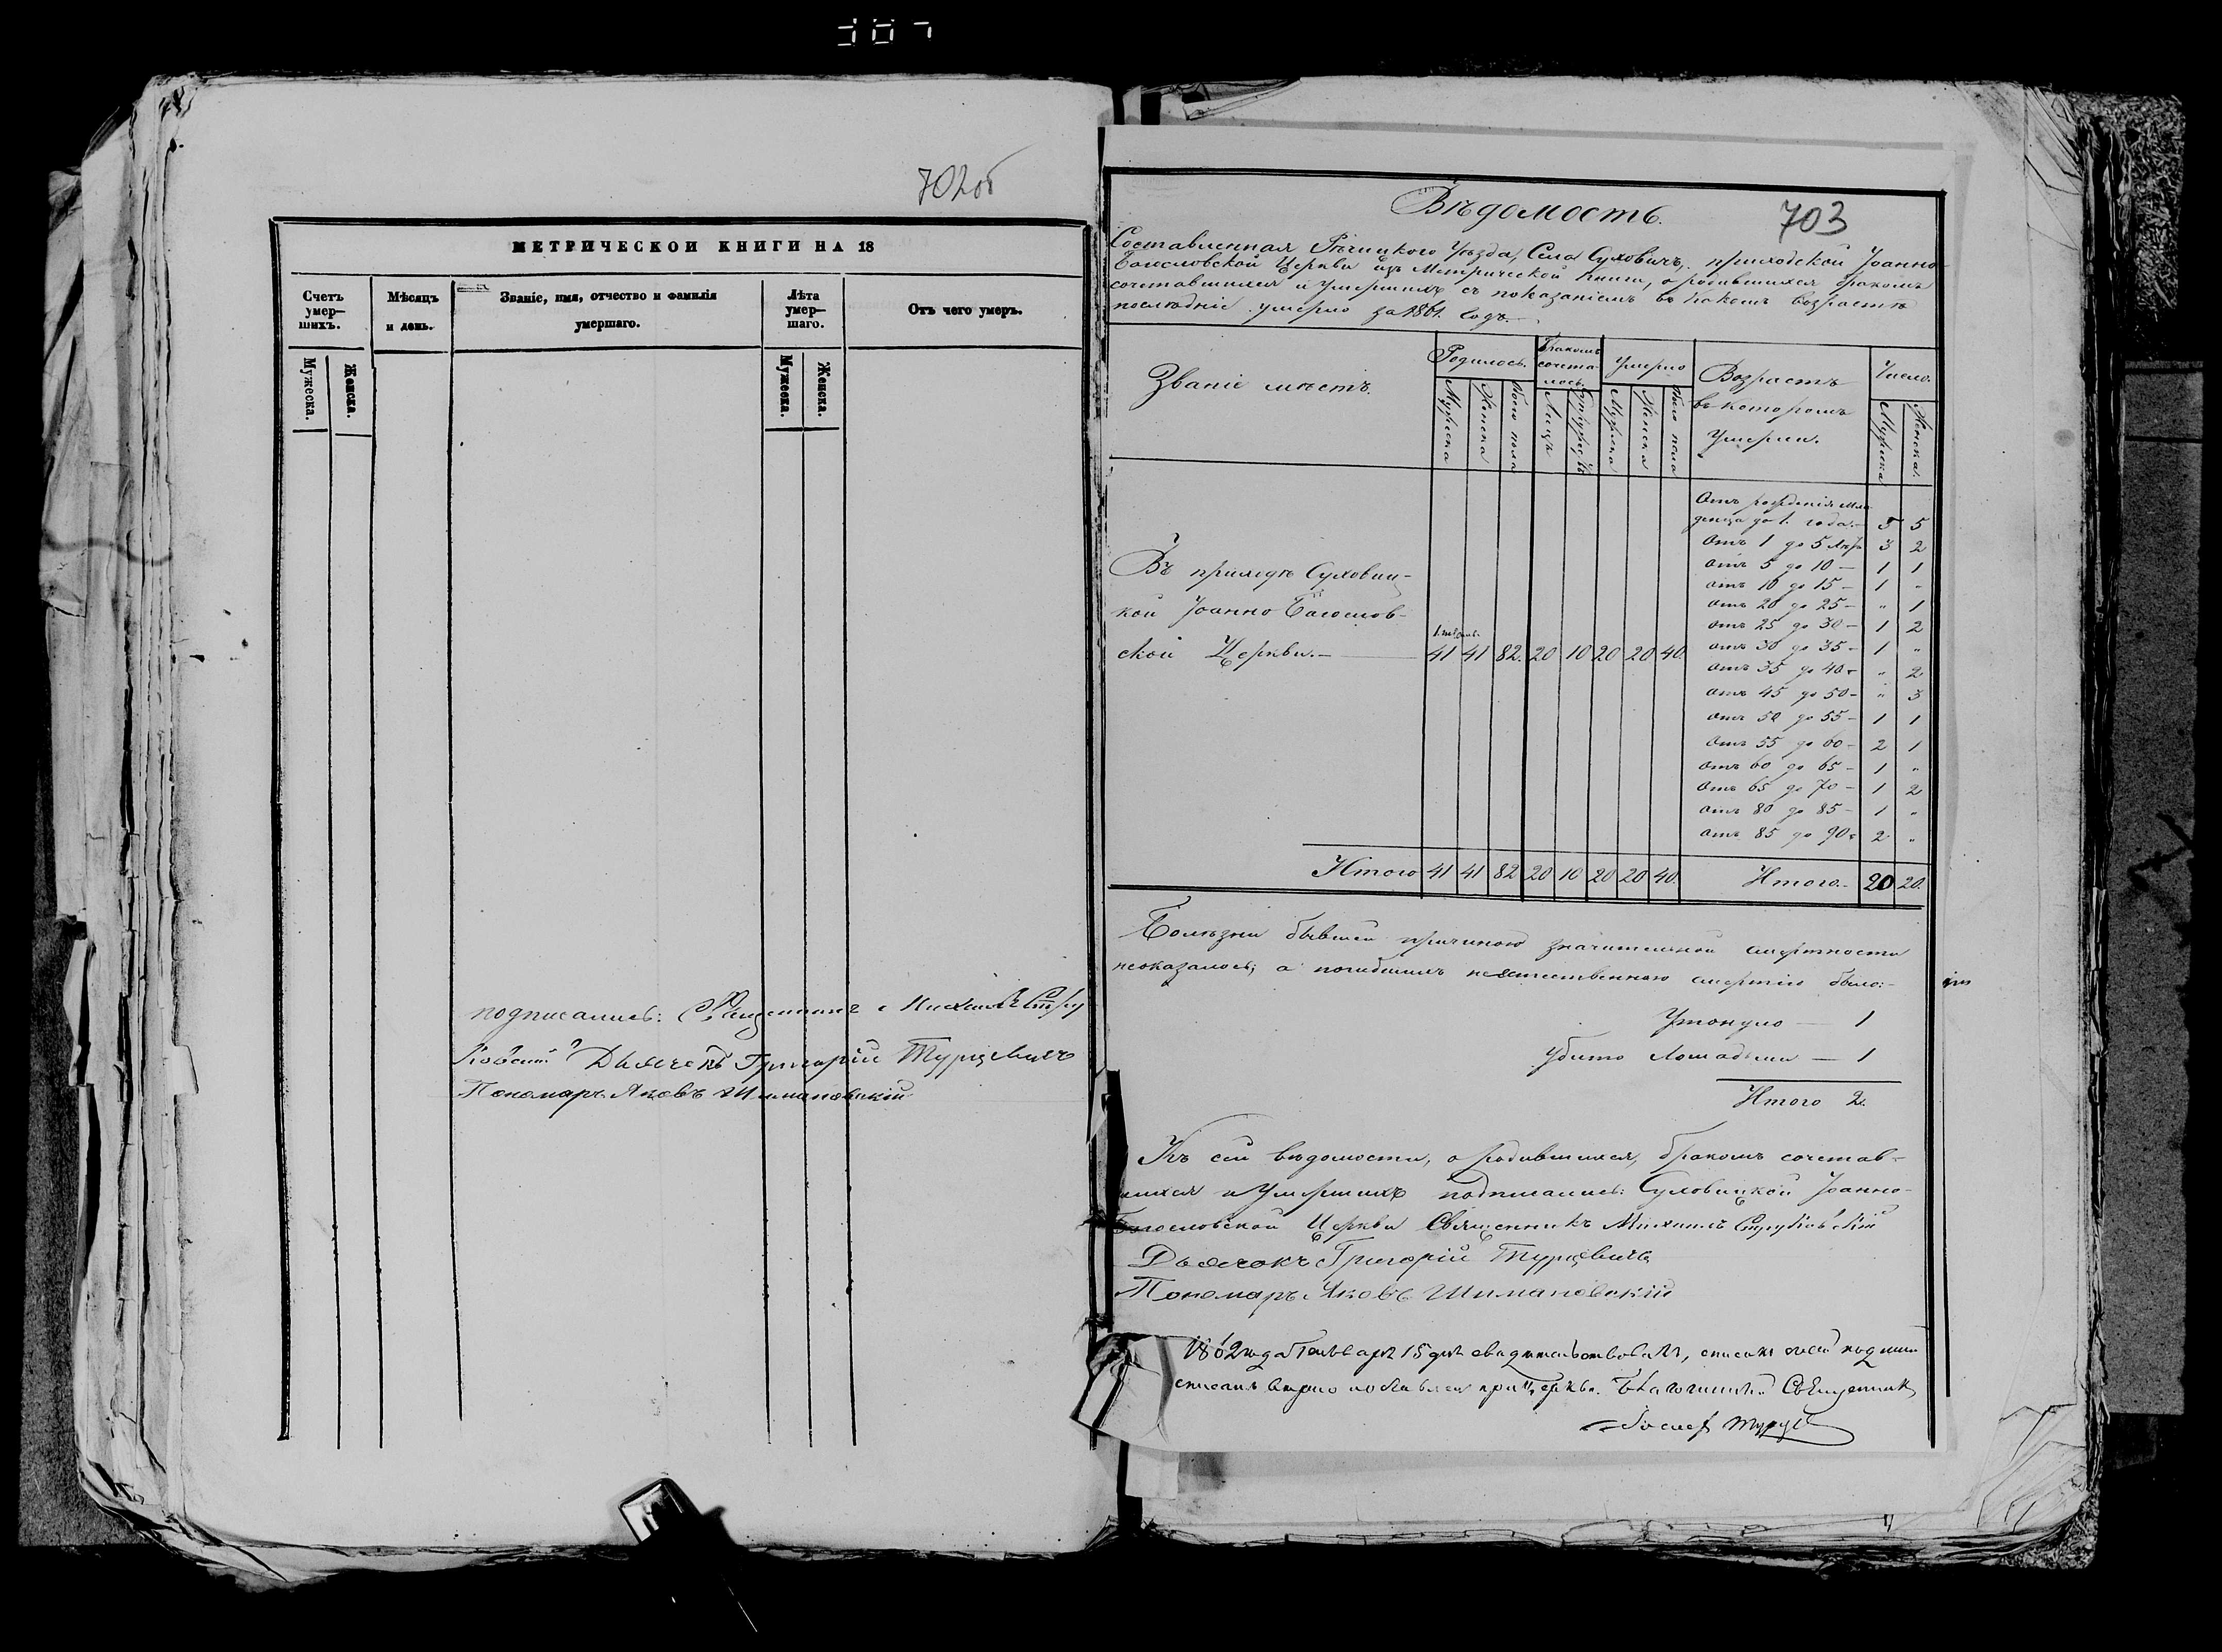 702об
МЕТРИЧЕСКОЙ КНИГИ НА 18
Счетъ умер-шихъ.
Мѣсяцъ и день.
Званіе, имя, отчество и фамилія умершаго.
Лѣта умер-шаго.
Отъ чего умеръ.
Мужеска.
Женска.
Мужеска.
Женска.
подписались: Священникъ Михаилъ Стру
ковскій Дьячекъ Григорій Турцевичъ
Пономаръ Яковъ Шимановскій
703
Вѣдомость.
Составленная Рѣчицкого Уѣзда, Села Суховичъ, приходской Іоанно-
Богословской Церкви изъ Метрической Книги, о родившихся бракомъ
сочетавшихся и умершихъ съ показаніемъ въ какомъ возрастѣ
послѣдніе умерло за 1861. годъ.
Званіе мѣстъ.
Родилось.
Бракомъ сочета-лось.
Умерло
Возрастъ въ которомъ Умерли.
Число.
Мужеска
Женска
Обоего пола
Лицъ
Супружествъ
Мужеска
Женска
Обоего пола
Мужеска
Женска.
Отъ рожденія мла
денца до 1. года.— 5 5
Отъ 1 до 5 лѣтъ 3 2
Отъ 5 до 10 — 1 1
отъ 10 до 15 — 1 "
отъ 20 до 25 — " 1
отъ 25 до 30 — 1 2
отъ 30 до 35 — 1 "
отъ 35 до 40 — " 2
отъ 45 до 50 — " 3
отъ 50 до 55 — 1 1
Отъ 55 до 60 — 2 1
отъ 60 до 65 — 1 "
Отъ 65 до 70 — 1 2
отъ 80 до 85 — 1 "
отъ 85 до 90 — 2 "
Въ приходѣ Суховиц-
кой Іоанно Богослов-
ской Церкви.— 41 41 82. 20 10 20 20 40.
Итого 41 41 82 20 10 20 20 40. Итого.— 20 20.
Болѣзни бывшей причиною значительной смертности
неоказалось; а погибшихъ неестественною смертію было:—
Утонуло — 1
Убито лошадьми — 1
Итого 2.
Къ сей вѣдомости, о родившихся, бракомъ сочетав-
шихся и Умершихъ подписались: Суховицкой Іоанно-
Богословской Церкви Священникъ Михаилъ Струковскій
Дьячокъ Григорій Турцевичъ
Пономаръ Яковъ Шимановскій
1862 года Генваря 15 дня свидетельствовалъ, списокъ
списанъ вѣрно при Церкви. Благочинный Священникъ